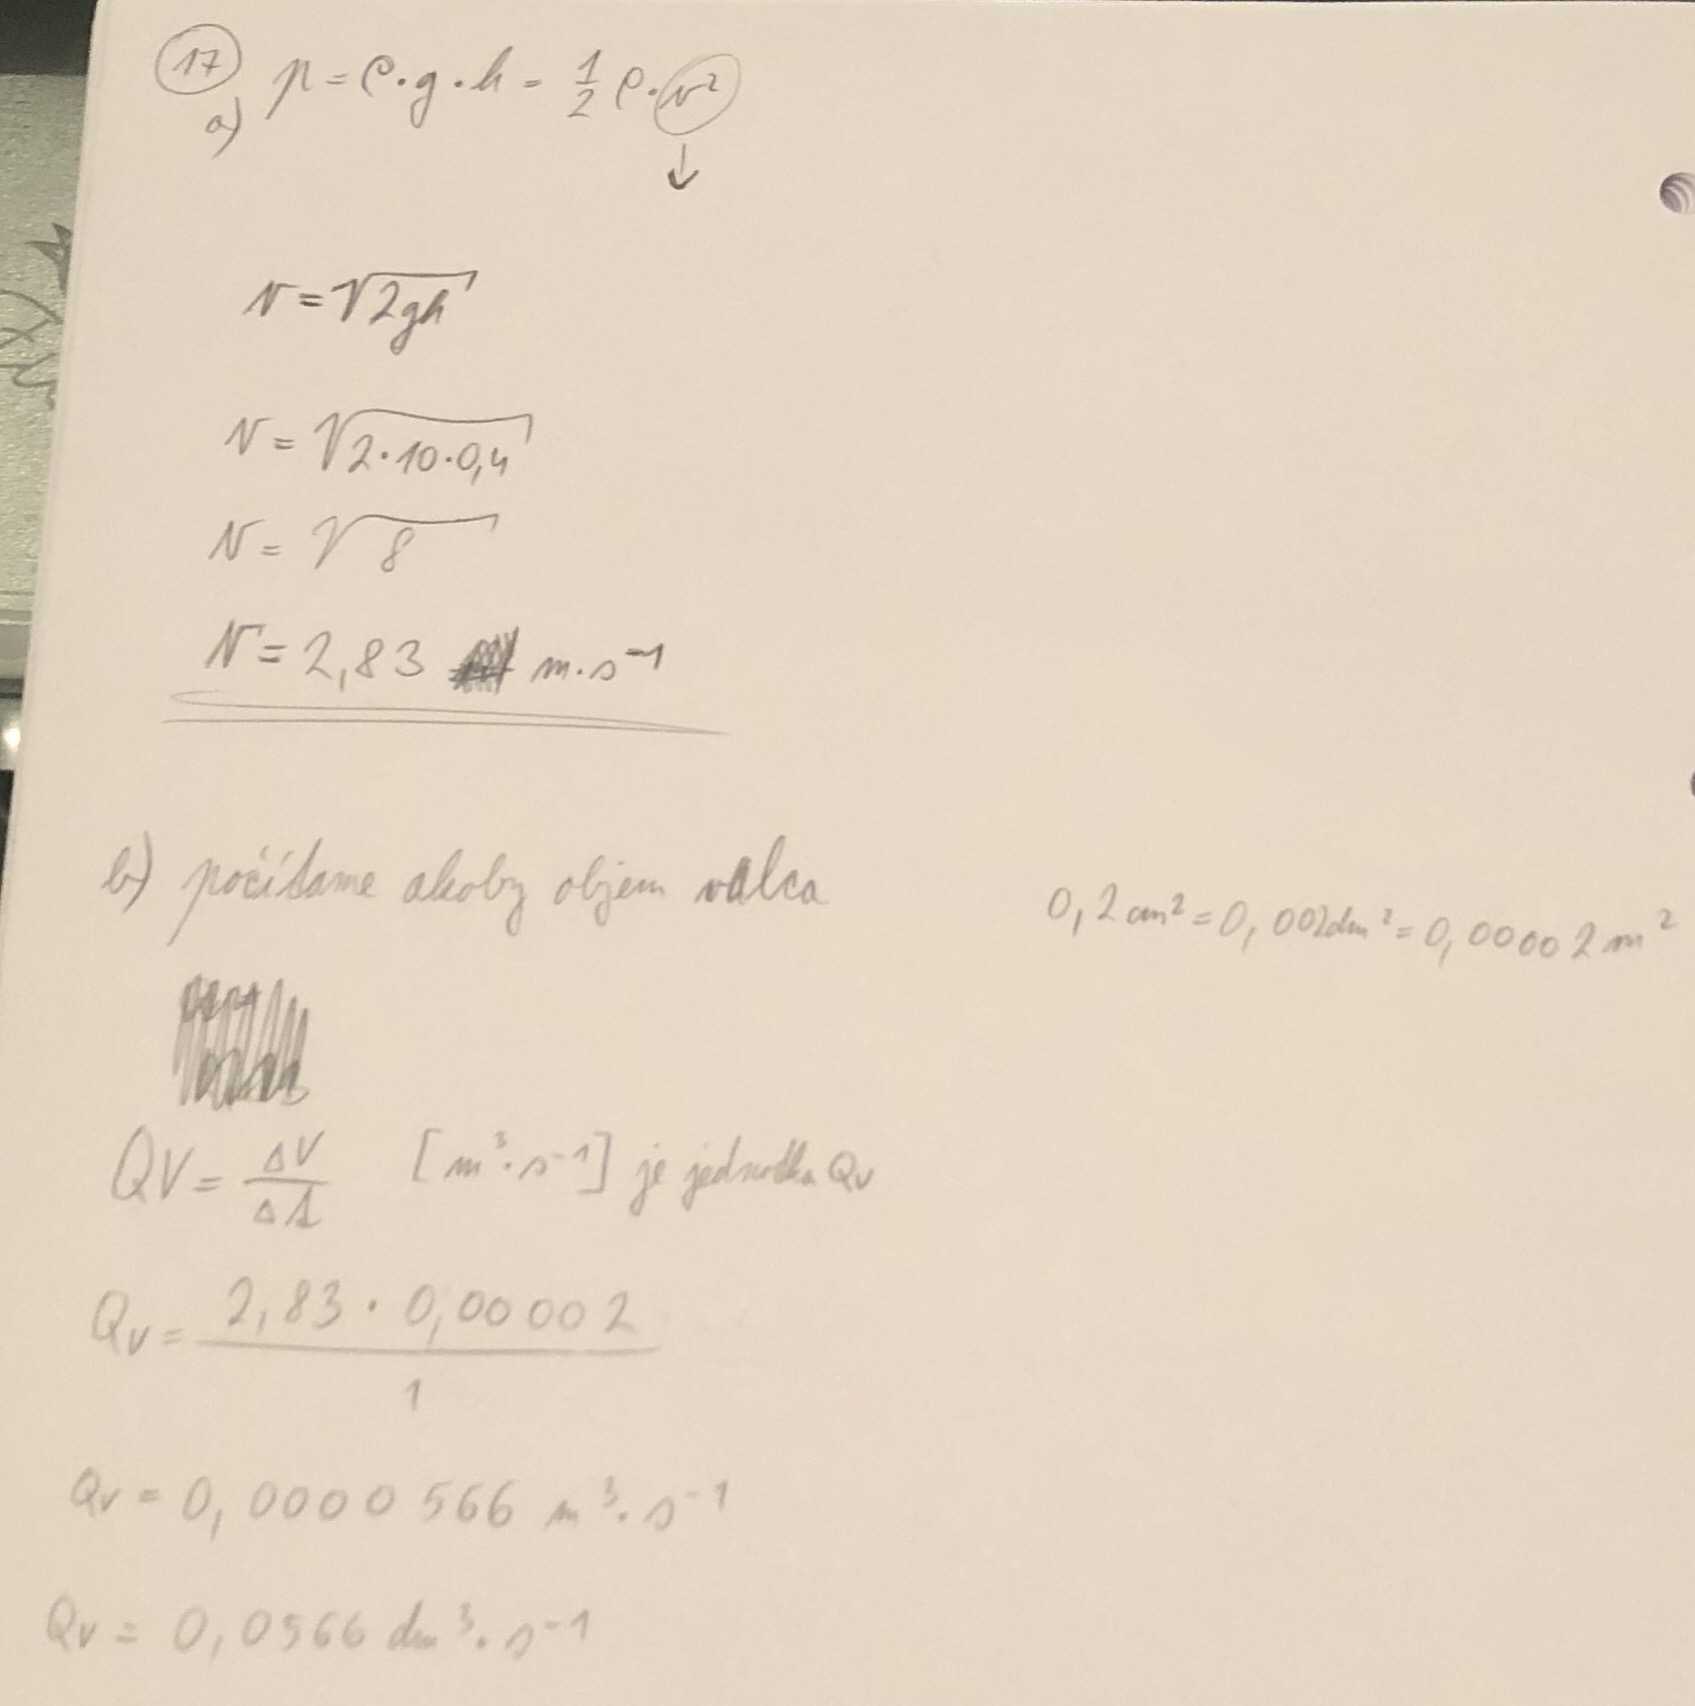 17 p = ρ·g·h = 1/2 ρ·v²
a) ↓
v = √2gh
v = √2·10·0,4
v = √8
v = 2,83 m·s⁻¹
b) počítame akoby objem valca
0,2 cm² = 0,002 dm² = 0,00002 m²
QV = ΔV/Δt [m³·s⁻¹] je jednotka Qv
Qv = 2,83 · 0,00002 / 1
Qv = 0,0000566 m³·s⁻¹
Qv = 0,0566 dm³·s⁻¹